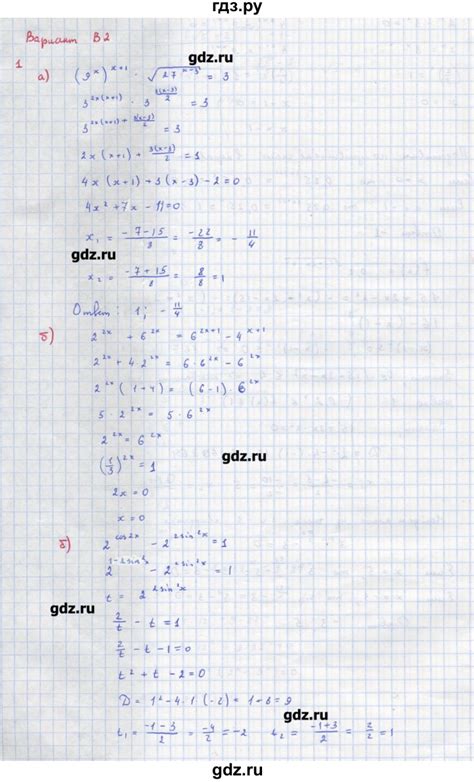 гдз.ру
Вариант В2
gdz.ru
1 а) (9^x)^{x+1} · √(27^{x-3}) = 3
3^{2x(x+1)} · 3^{3(x-3)/2} = 3
3^{2x(x+1) + 3(x-3)/2} = 3
2x(x+1) + 3(x-3)/2 = 1
4x(x+1) + 3(x-3) - 2 = 0
4x² + 7x - 11 = 0
x₁ = (-7-15)/8 = -22/8 = -11/4
gdz.ru
x₂ = (-7+15)/8 = 8/8 = 1
Ответ: 1; -11/4
б) 2^{2x} + 6^{2x} = 6^{2x+1} - 4^{x+1}
2^{2x} + 4·2^{2x} = 6·6^{2x} - 6^{2x}
2^{2x}(1+4) = (6-1)·6^{2x}
5·2^{2x} = 5·6^{2x}
gdz.ru
2^{2x} = 6^{2x}
(1/3)^{2x} = 1
2x = 0
x = 0
б) 2^{cos2x} - 2^{2sin²x} = 1
2^{1-2sin²x} - 2^{2sin²x} = 1
t = 2^{2sin²x}
gdz.ru
2/t - t = 1
2/t - t - 1 = 0
t² + t - 2 = 0
D = 1² - 4·1·(-2) = 1+8 = 9
gdz.ru
t₁ = (-1-3)/2 = -4/2 = -2 t₂ = (-1+3)/2 = 2/2 = 1